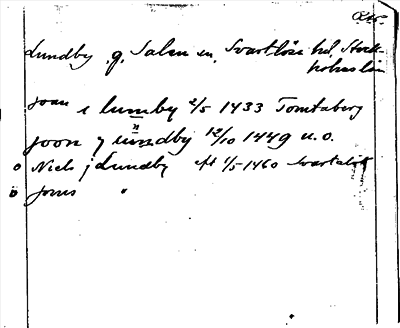 Lundby, g. Salem sn, Svartlösa hd, Stock-
holms län
joan i lumby 2/5 1433 Tomtaberg
joon j lundby 12/10 1449 u.o.
o Niels j Lundby eft 1/5 1460
o Jonis "